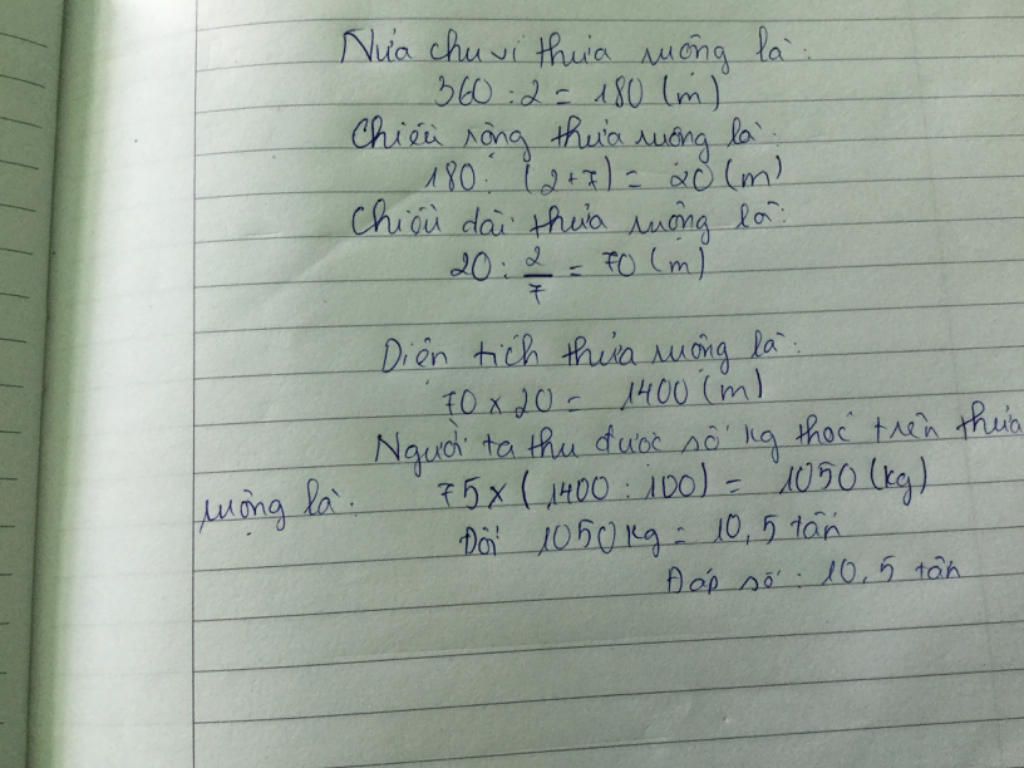 Nửa chu vi thửa ruộng là:
360 : 2 = 180 (m)
Chiều rộng thửa ruộng là:
180 : (2+7) = 20 (m)
Chiều dài thửa ruộng là:
20 : 2/7 = 70 (m)
Diện tích thửa ruộng là:
70 x 20 = 1400 (m)
Người ta thu được số kg thóc trên thửa
ruộng là: 75 x (1400 : 100) = 1050 (kg)
Đổi 1050 kg = 10,5 tấn
Đáp số : 10,5 tấn